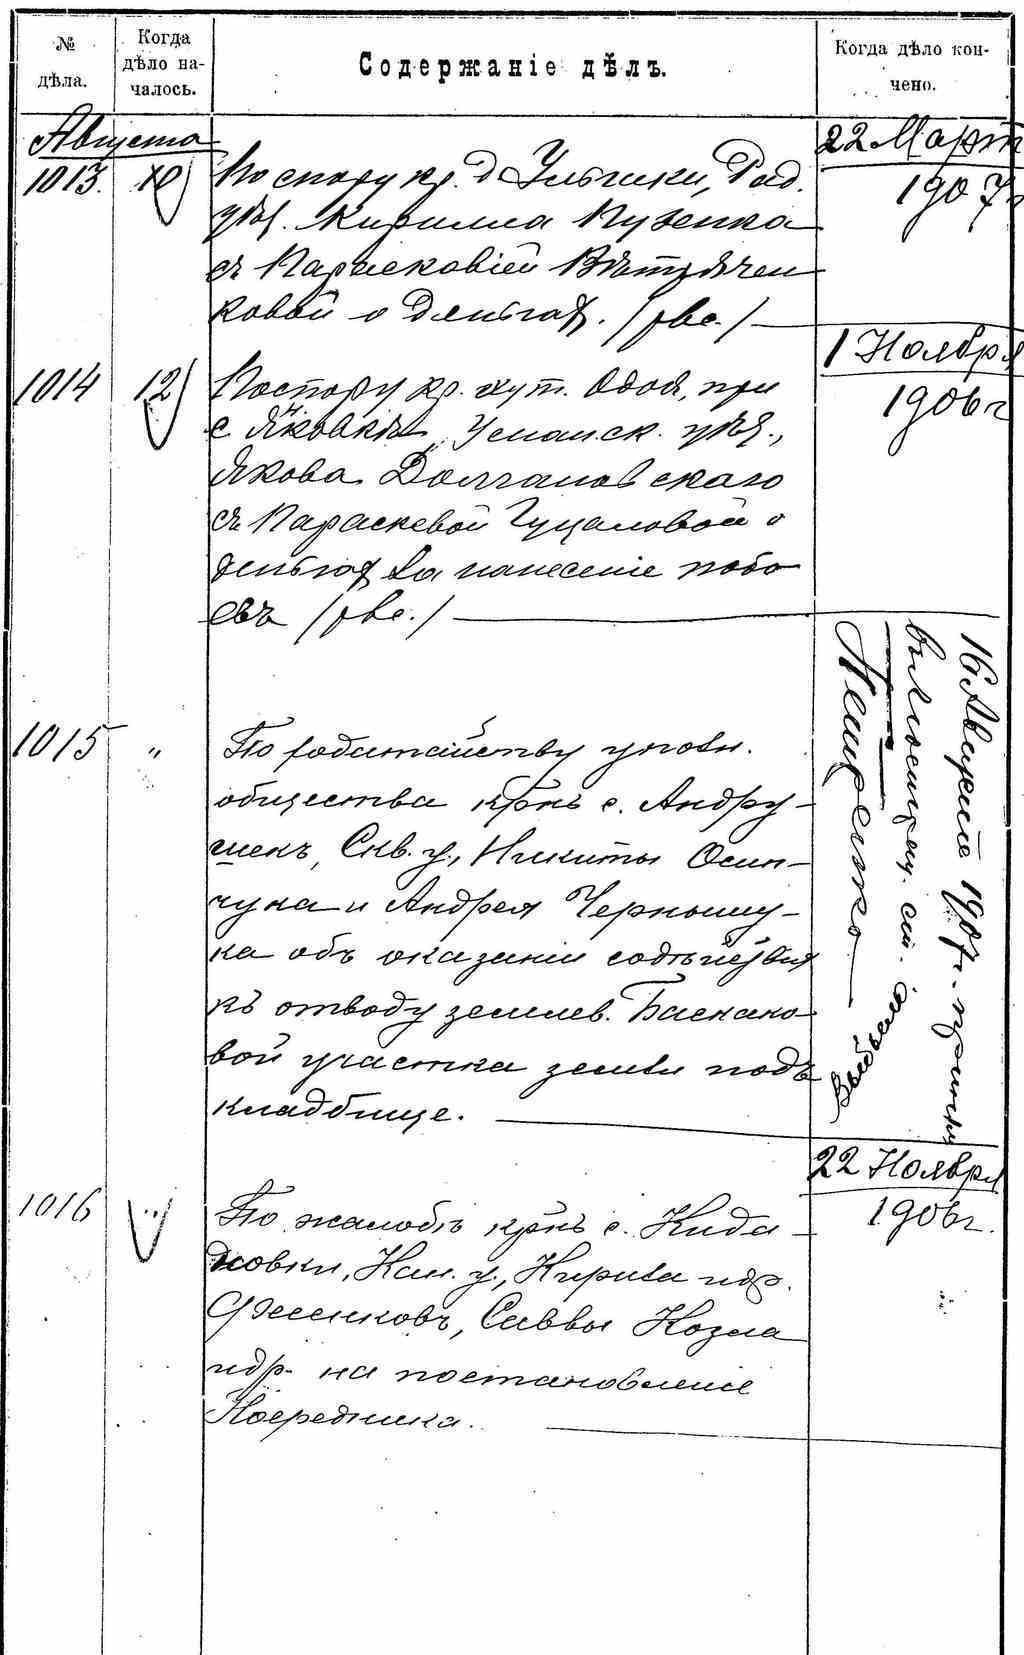 №
дѣла.
Когда
дѣло на-
чалось.
Содержаніе дѣлъ.
Когда дѣло кон-
чено.
Августа
1013. 10
По спору кр. д Ульшки, Рад.
уѣз. Кирилла Пузенка
съ Парасковіей Вѣтрячен
ковой о деньгах. /рев./
22 Март
1907г
1014 12
По спору кр. хут. Одая, при
с. Яковкѣ, Уманск. уѣз.,
Якова Долгановскаго
съ Параскевой Гуцаловой о
деньгах за нанесеніе побо
евъ /рев./
1 Ноября
1906г
1015 "
По ходатайству уполн.
общества крнъ с. Андру-
шекъ, Скв. у., Никиты Осин-
чука и Андрея Черныш-
ка объ оказаніи содѣйствія
къ отводу землев. Баскако
вой участка земли подъ
кладбище.
16 Августа 1907г.
1016 "
По жалобѣ крнъ с. Кида
новки, Кан. у., Кирила идр.
Саввы Козла
идр. на постановленіе
Посредника.
22 Ноября
1906г.